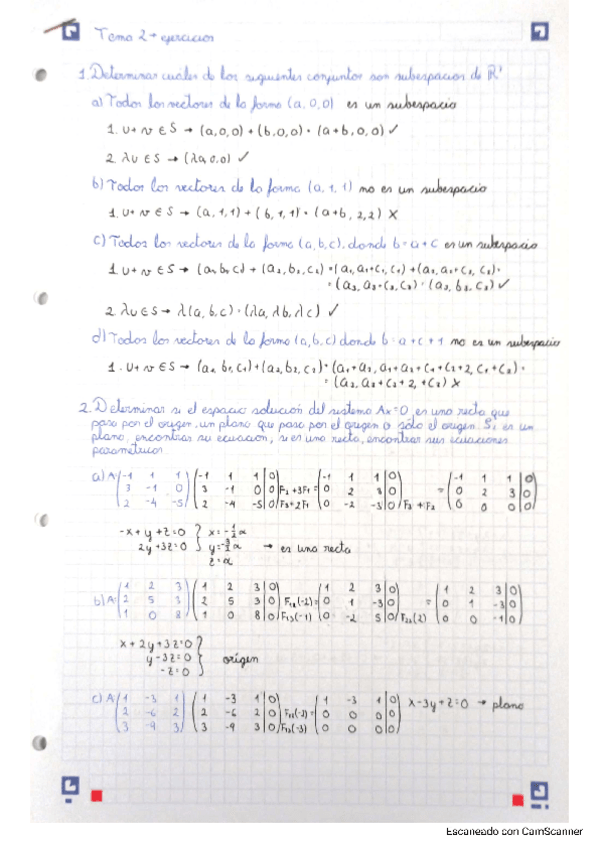 Tema 2 → ejercicios
1. Determinar cuáles de los siguientes conjuntos son subespacios de R³
a) Todos los vectores de la forma (a, 0, 0) es un subespacio
1. u + v ∈ S → (a, 0, 0) + (b, 0, 0) = (a+b, 0, 0) ✓
2. λu ∈ S → (λa, 0, 0) ✓
b) Todos los vectores de la forma (a, 1, 1) no es un subespacio
1. u + v ∈ S → (a, 1, 1) + (b, 1, 1) = (a+b, 2, 2) X
c) Todos los vectores de la forma (a, b, c), donde b = a + c es un subespacio
1. u + v ∈ S → (a, b, c) + (a₂, b₂, c₂) = (a₁, a₁+c₁, c₁) + (a₂, a₂+c₂, c₂) =
= (a₃, a₃+c₃, c₃) = (a₃, b₃, c₃) ✓
2. λu ∈ S → λ(a, b, c) = (λa, λb, λc) ✓
d) Todos los vectores de la forma (a, b, c) donde b = a + c + 1 no es un subespacio
1. u + v ∈ S → (a₁, b₁, c₁) + (a₂, b₂, c₂) = (a₁+a₂, a₁+a₂+c₁+c₂+2, c₁+c₂) =
= (a₃, a₃+c₃+2, +c₃) X
2. Determinar si el espacio solución del sistema Ax=0, es una recta que
pasa por el origen, un plano que pasa por el origen o sólo el origen. Si es un
plano, encontrar su ecuación, si es una recta, encontrar sus ecuaciones
parametricas.
a) A (-1 1 1 (-1 1 1|0 (-1 1 1|0 (-1 1 1|0
3 -1 0 3 -1 0|0 F₂+3F₁ = 0 2 3|0 = 0 2 3|0
2 -4 -5) 2 -4 -5|0) F₃+2F₁ 0 -2 -3|0) F₃+F₂ 0 0 0|0)
-x+y+z=0 } x=-½α
2y+3z=0 } y=-3/2α → es una recta
z=α
b) A= (1 2 3 (1 2 3|0) (1 2 3|0 (1 2 3|0
2 5 3 2 5 3|0 F₁₂(-2) = 0 1 -3|0 = 0 1 -3|0
1 0 8) 1 0 8|0) F₁₃(-1) 0 -2 5|0) F₂₃(2) 0 0 -1|0)
x+2y+3z=0
y-3z=0 } origen
-z=0
c) A (1 -3 1 (1 -3 1|0) (1 -3 1|0) x-3y+z=0 → plano
2 -6 2 2 -6 2|0 F₁₂(-2) = 0 0 0|0
3 -9 3) 3 -9 3|0) F₁₃(-3) 0 0 0|0)
Escaneado con CamScanner